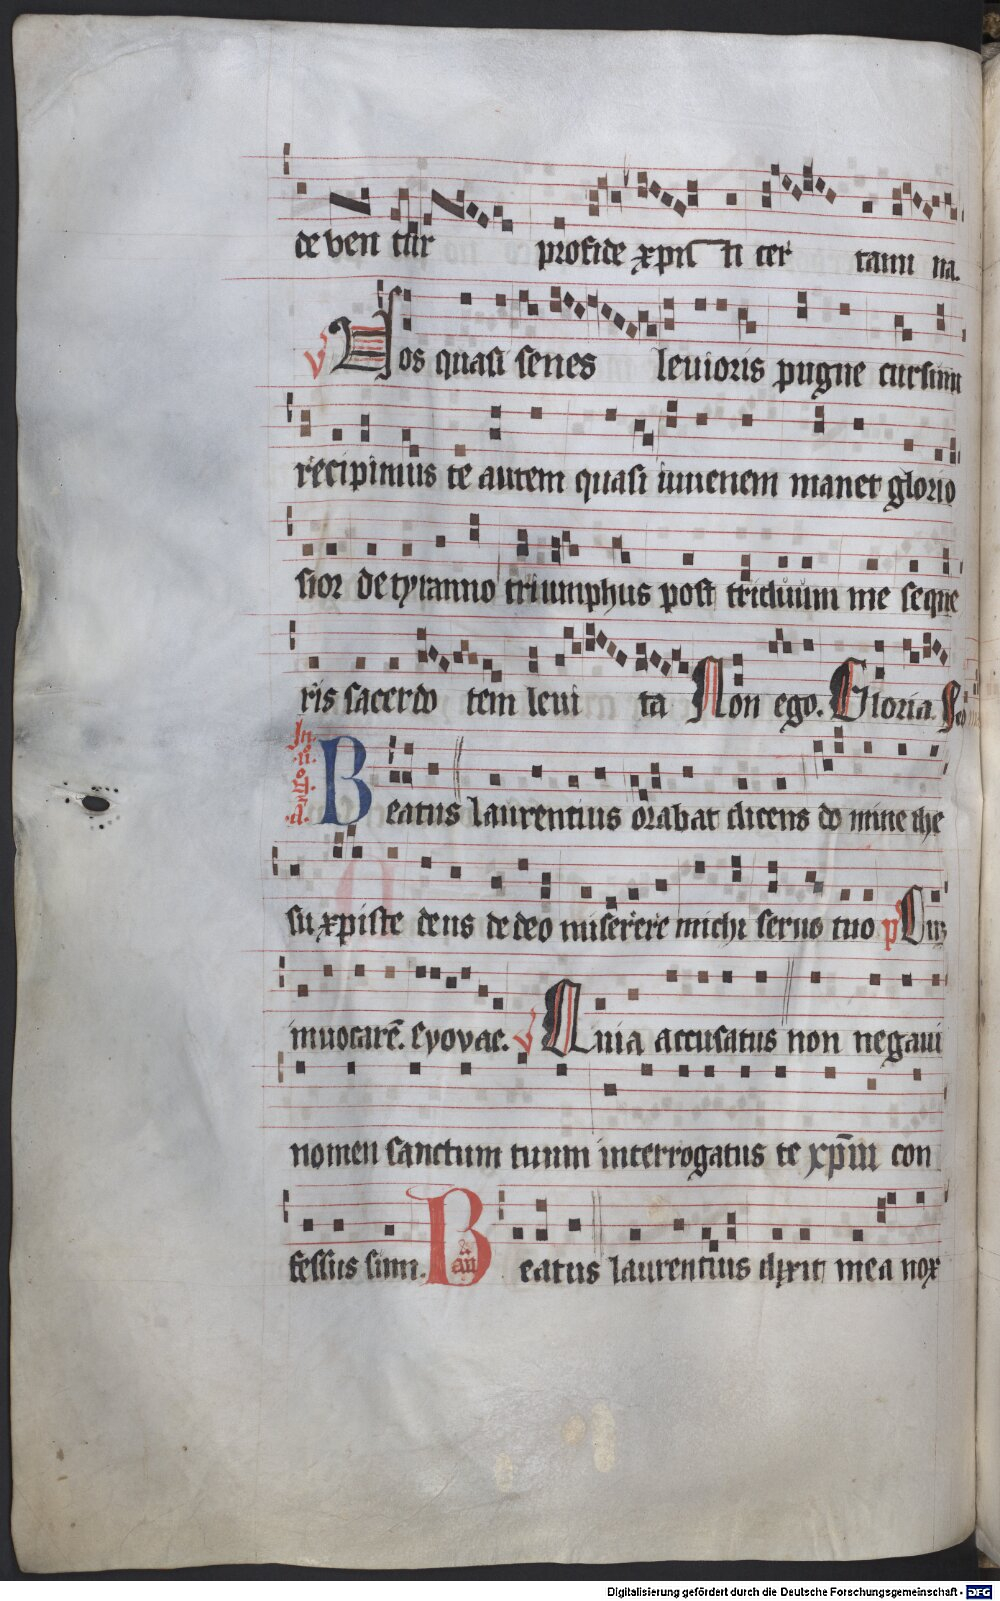 debentur pro fide xpisti certami na.
V Nos quasi senes levioris pugne cursum
recipimus te autem quasi iuuenem manet glorio
sior de tyranno triumphus post triduum me seque
ris sacerdo tem levi ta Non ego. Gloria.
In .ii. Beatus laurentius orabat dicens do mine ihe
su xpiste deus de deo miserere michi seruo tuo p̄s Cum
inuocarē. Evovae. V Quia accusatus non negaui
nomen sanctum tuum interrogatus te xp̄m con
fessus sum. an̄ Beatus laurentius dixit mea nox
Digitalisierung gefördert durch die Deutsche Forschungsgemeinschaft - DFG